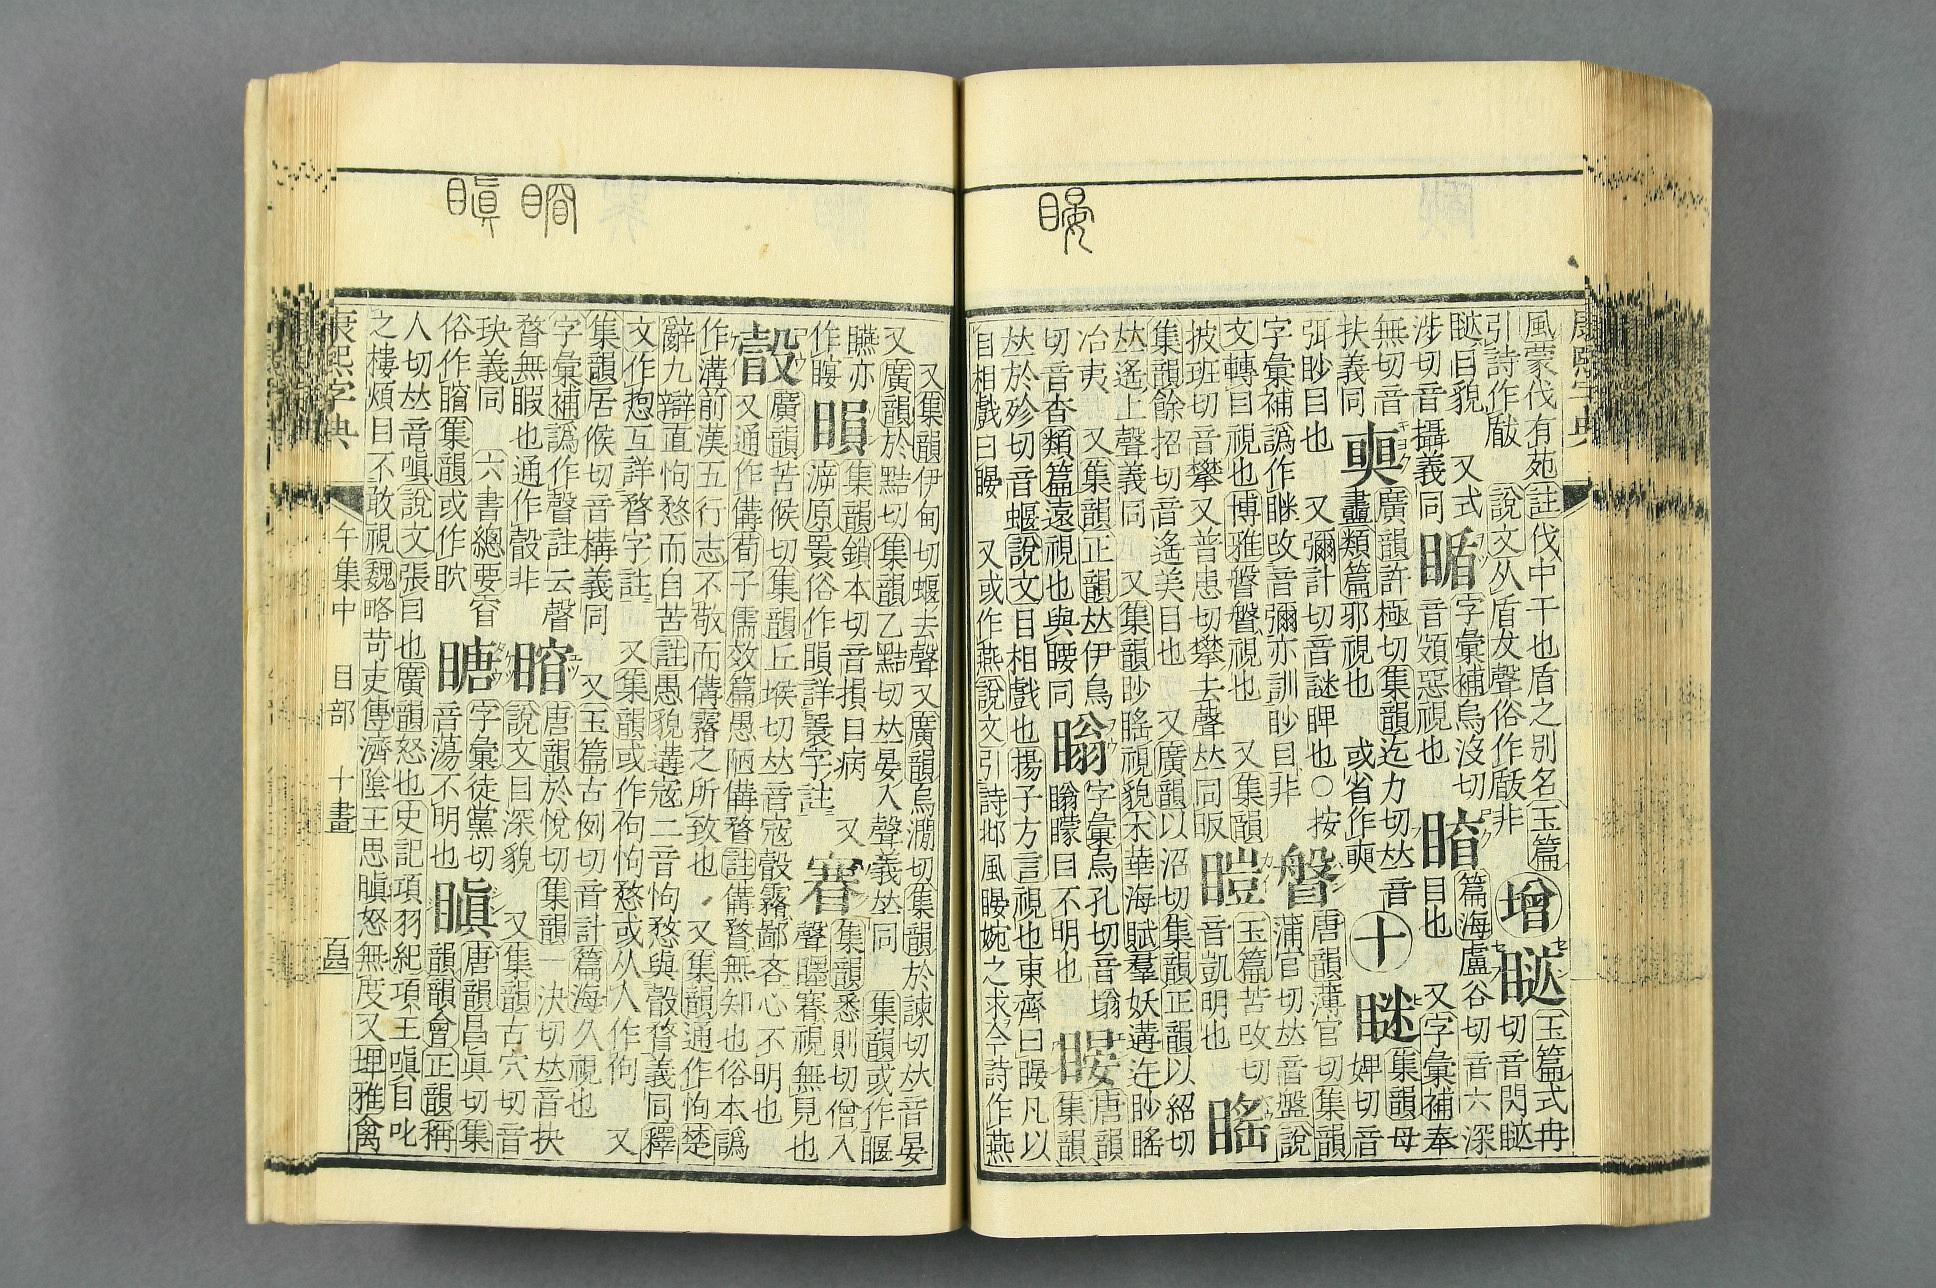 風蒙伐有苑註伐中干也盾之別名玉篇
引詩作瞂 說文从盾犮聲俗作瞂非
增
睒
玉篇式冉
切音閃睒
睒目貌 又式
涉切音攝義同
字彙補烏沒切
音頞惡視也
篇海盧谷切音六深
目也 又字彙補奉
無切音
扶義同
廣韻許極切集韻迄力切𠀤音
衋類篇邪視也 或省作奭
十
集韻母
婢切音
弭眇目也 又彌計切音謎睥也○按
字彙補譌作䀛攺音彌亦訓眇目非
䁂
唐韻薄官切集韻
蒲官切𠀤音盤說
文轉目視也博雅䁂䁂視也 又集韻
披班切音攀又普患切攀去聲𠀤同眅
玉篇苦改切
音凱明也
䁘
集韻餘招切音遙美目也 又廣韻以沼切集韻正韻以紹切
𠀤遙上聲義同 又集韻眇䁘視貌木華海賦羣妖遘迕眇䁘
冶夷 又集韻正韻𠀤伊鳥
切音杳類篇遠視也與䁏同
瞈
字彙烏孔切音塕
瞈矇目不明也
䁙
唐韻
集韻
𠀤於殄切音蝘說文目相戲也揚子方言視也東齊曰䁙凡以
目相戲曰䁙 又或作燕說文引詩邶風䁙婉之求今詩作燕
又集韻伊甸切蝘去聲又廣韻烏澗切集韻於諫切𠀤音晏
又廣韻於黠切集韻乙黠切𠀤晏入聲義𠀤同 集韻或作
臙亦
作䁙
䁚
集韻鎖本切音損目病 又
原睘俗作䁚詳睘字註
集韻悉則切僧入
聲 視無見也
瞉
廣韻苦候切集韻丘堠切𠀤音寇瞉霿鄙吝心不明也
又通作傋荀子儒效篇愚陋傋瞀註傋瞀無知也俗本譌
作溝前漢五行志不敬而傋霿之所致也 又集韻通作怐楚
辭九辯直怐愗而自苦註愚貌遘寇二音怐愗與瞉瞀義同釋
文作㨌互詳瞀字註 又集韻或作佝怐愗或从人作佝 又
集韻居候切音構義同 又玉篇古例切音計篇海久視也
字彙補譌作聲註云聲
瞀無暇也通作瞉非
䁓
唐韻於悅切集韻一決切𠀤音抉
說文目深貌 又集韻古穴切音
玦義同 六書總要䆞
俗作䁓集韻或作䀗
瞊
字彙徒黨切
音蕩不明也
瞋
唐韻昌眞切集
韻韻會正韻稱
人切𠀤音嗔說文張目也廣韻怒也史記項羽紀項王嗔目叱
之樓煩目不敢視魏略苛吏傳濟陰王思瞋怒無度又埤雅禽
康熙字典
午集中 目部 十畫